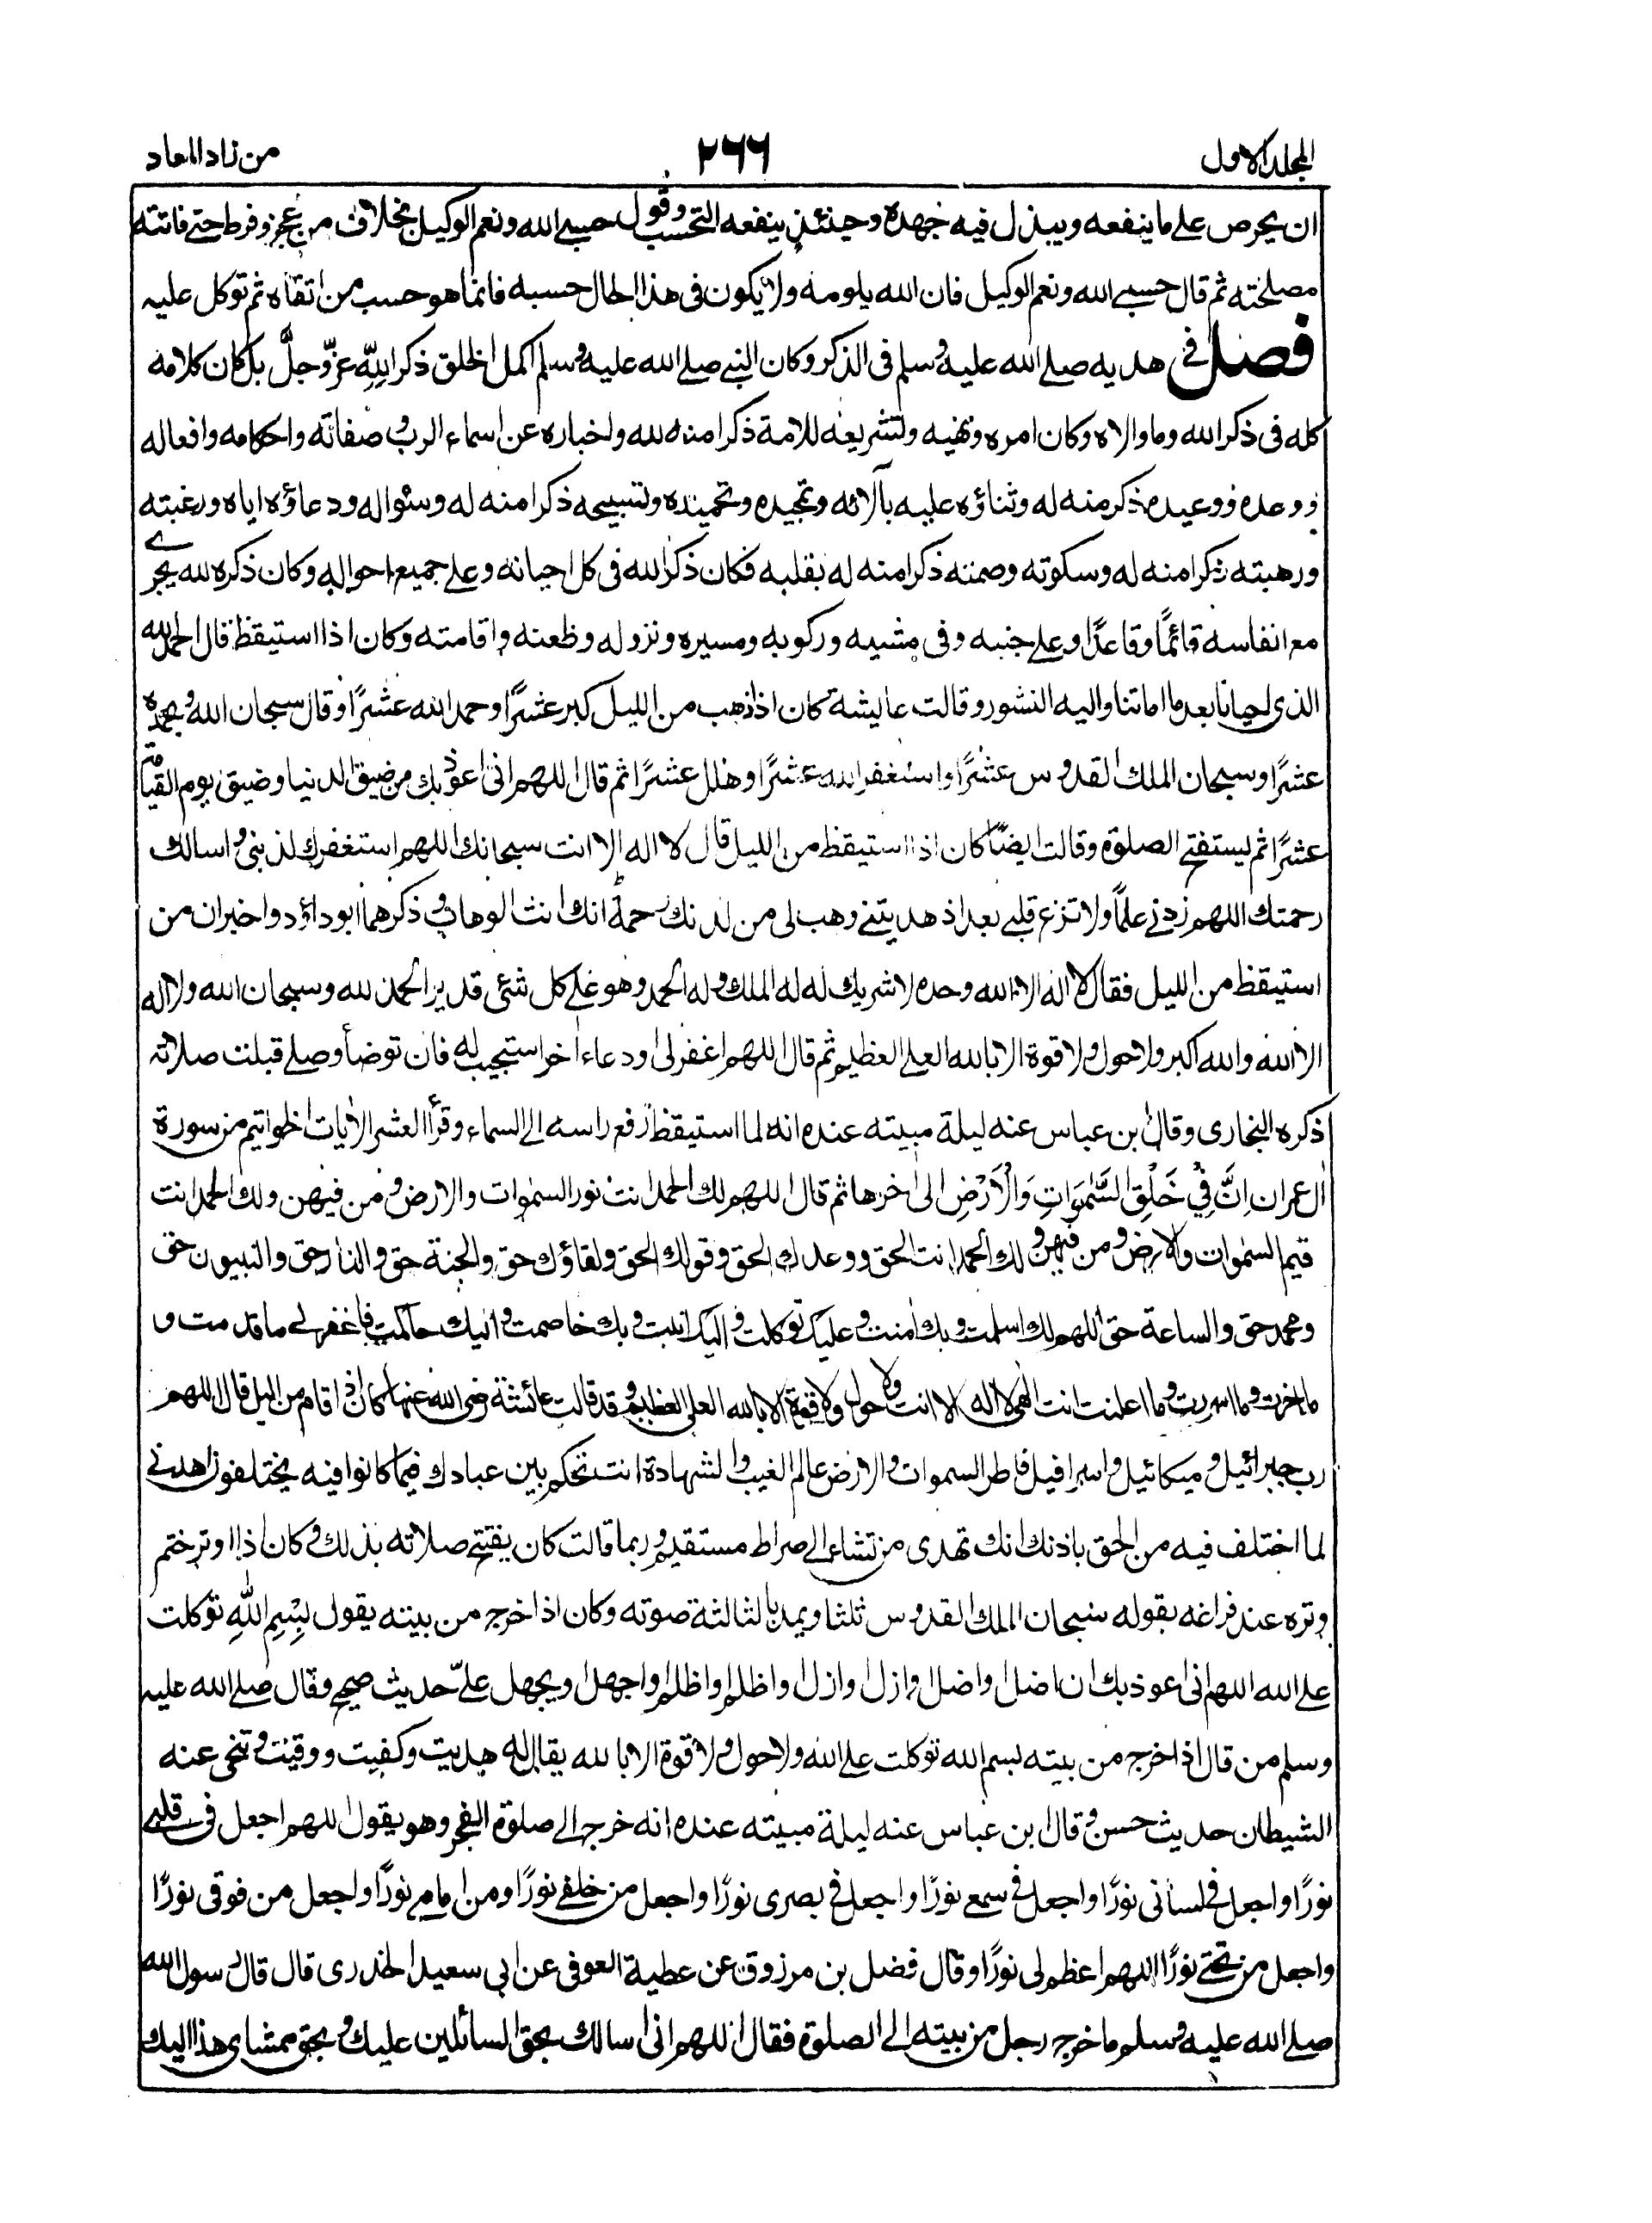 المجلد الاول ٢٦٦ من زاد المعاد
ان يحرص على ما ينفعه ويبذل فيه جهده وحينئذ ينفعه التحسب وقول حسبي الله ونعم الوكيل بخلاف من عجز وفرط حتى فاتته
مصلحته ثم قال حسبي الله ونعم الوكيل فان الله يلومه ولا يكون في هذا الحال حسبه فانما هو حسب من اتقاه ثم توكل عليه
فصل في هديه صلى الله عليه وسلم في الذكر وكان النبي صلى الله عليه وسلم اكمل الخلق ذكرا لله عز وجل بل كان كلامه
كله في ذكر الله وما والاه وكان امره ونهيه وتشريعه للامة ذكرا منه لله واخباره عن اسماء الرب وصفاته واحكامه وافعاله
ووعده ووعيده ذكر منه له وثناؤه عليه بآلائه وتمجيده وتحميده وتسبيحه ذكرا منه له وسئواله ودعاؤه اياه ورغبته
ورهبته ذكرا منه له وسكوته وصمته ذكرا منه له بقلبه فكان ذكر الله في كل احيانه وعلى جميع احواله وكان ذكره لله يجري
مع انفاسه قائمًا وقاعدًا وعلى جنبه وفي مشيه وركوبه ومسيره ونزوله وظعنه واقامته وكان اذا استيقظ قال الحمد لله
الذي احيانا بعد ما اماتنا واليه النشور وقالت عايشة كان اذا هب من الليل كبر عشرًا وحمد الله عشرًا وقال سبحان الله وبحمده
عشرًا وسبحان الملك القدوس عشرًا واستغفر الله عشرًا وهلل عشرًا ثم قال اللهم اني اعوذ بك من ضيق الدنيا وضيق يوم القيامة
عشرًا ثم يستفتح الصلوة وقالت ايضًا كان اذا استيقظ من الليل قال لا اله الا انت سبحانك اللهم استغفرك لذنبي واسالك
رحمتك اللهم زدني علمًا ولا تزغ قلبي بعد اذ هديتني وهب لي من لدنك رحمة انك انت الوهاب وذكرهما ابو داؤد واخبر ان من
استيقظ من الليل فقال لا اله الا الله وحده لا شريك له له الملك وله الحمد وهو على كل شئ قدير الحمد لله وسبحان الله ولا اله
الا الله والله اكبر ولا حول ولا قوة الا بالله العلي العظيم ثم قال اللهم اغفر لي او دعاء اخر استجيب له فان توضأ وصلى قبلت صلاته
ذكره البخاري وقال بن عباس عنه ليلة مبيته عنده انه لما استيقظ رفع راسه الى السماء وقرأ العشر الايات الخواتيم من سورة
ال عمران اِنَّ فِيْ خَلْقِ السَّمٰوَاتِ وَالْاَرْضِ الى اخرها ثم قال اللهم لك الحمد انت نور السمٰوات والارض ومن فيهن ولك الحمد انت
قيم السمٰوات والارض ومن فيهن ولك الحمد انت الحق ووعدك الحق وقولك الحق ولقاؤك حق والجنة حق والنار حق والنبيون حق
ومحمد حق والساعة حق اللهم لك اسلمت وبك امنت وعليك توكلت واليك انبت وبك خاصمت واليك حاكمت فاغفر لي ما قدمت و
ما اخرت وما اسررت وما اعلنت انت الهي لا اله الا انت ولا حول ولا قوة الا بالله العلي العظيم وقد قالت عائشة رضي الله عنها كان اذا قام من اليل قال اللهم
رب جبرائيل وميكائيل واسرافيل فاطر السموات والارض عالم الغيب والشهادة انت تحكم بين عبادك فيما كانوا فيه يختلفون اهدني
لما اختلف فيه من الحق باذنك انك تهدي من تشاء الى صراط مستقيم وربما قالت كان يفتتح صلاته بذلك وكان اذا اوتر ختم
وتره عند فراغه بقوله سبحان الملك القدوس ثلثا ويمد بالثالثة صوته وكان اذا خرج من بيته يقول بِسْمِ اللهِ توكلت
على الله اللهم اني اعوذ بك ان اضل او اضل او ازل او ازل او اظلم او اظلم او اجهل او يجهل عليّ حديث صحيح وقال صلى الله عليه
وسلم من قال اذا خرج من بيته بسم الله توكلت على الله ولا حول ولا قوة الا بالله يقال له هديت وكفيت ووقيت وتنحى عنه
الشيطان حديث حسن وقال ابن عباس عنه ليلة مبيته عنده انه خرج الى صلوة الفجر وهو يقول اللهم اجعل في قلبي
نورًا واجعل في لساني نورًا واجعل في سمعي نورًا واجعل في بصري نورًا واجعل من خلفي نورًا ومن امامي نورًا واجعل من فوقي نورًا
واجعل من تحتي نورًا اللهم اعظم لي نورًا وقال فضل بن مرزوق عن عطية العوفي عن ابي سعيد الخدري قال قال رسول الله
صلى الله عليه وسلم ما خرج رجل من بيته الى الصلوة فقال اللهم اني اسالك بحق السائلين عليك وبحق ممشاي هذا اليك